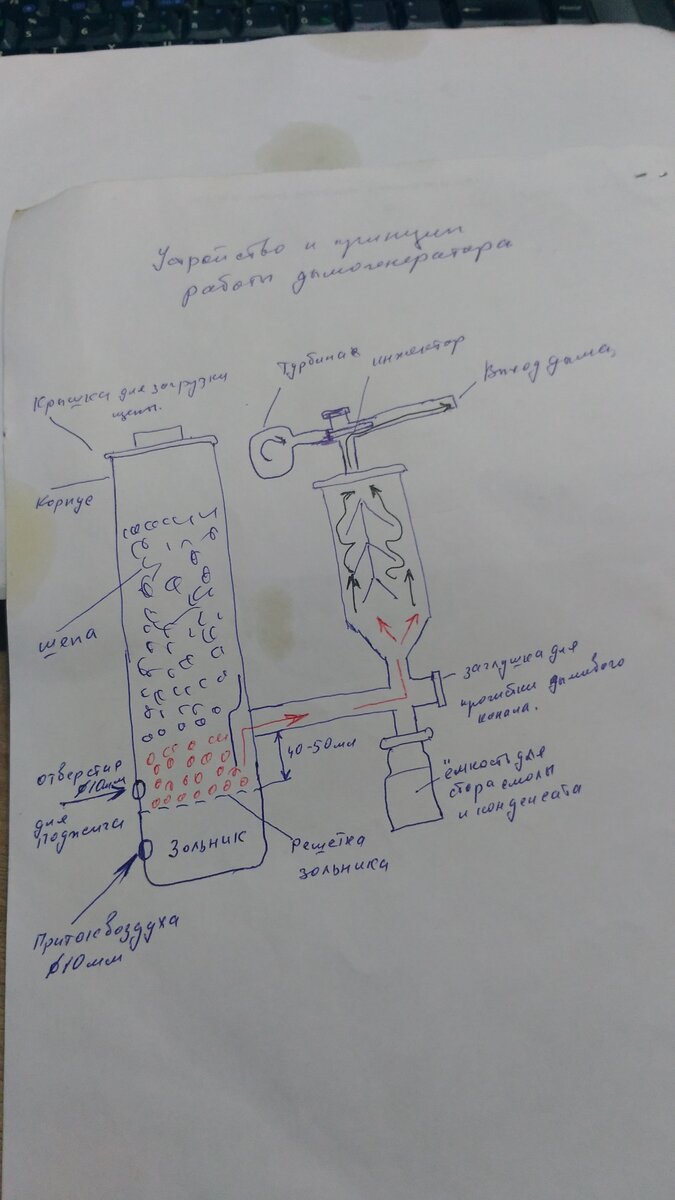 Устройство и принцип
работы дымогенератора
Турбина
инжектор
Выход дыма,
Крышка для загрузки
щепы.
Корпус
щепа
заглушка для
прочистки дымового
канала.
40-50мм
отверстие
ø10мм
для
поджига
ёмкость для
сбора смолы
и конденсата
Зольник
Решётка
зольника
Приток воздуха
ø10мм